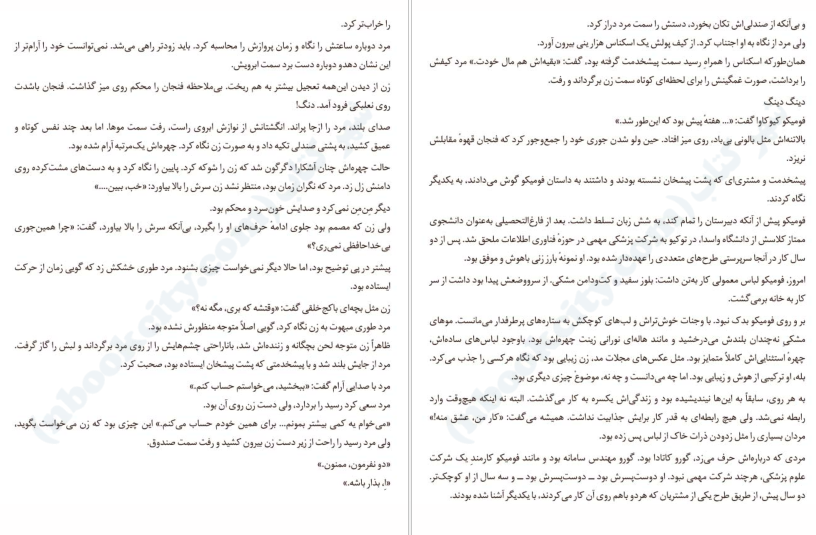 و بی‌آنکه از صندلی‌اش تکان بخورد، دستش را سمت مرد دراز کرد.
ولی مرد از نگاه به او اجتناب کرد. از کیف پولش یک اسکناس هزار ینی بیرون آورد.
همان‌طورکه اسکناس را همراهِ رسید سمت پیشخدمت گرفته بود، گفت: «بقیه‌اش هم مال خودت.» مرد کیفش
را برداشت، صورت غمگینش را برای لحظه‌ای کوتاه سمت زن برگرداند و رفت.
دینگ دینگ
فومیکو کیوکاوا گفت: «... هفتهٔ پیش بود که این‌طور شد.»
بالاتنه‌اش مثل بالونی بی‌باد، روی میز افتاد. حین ولو شدن جوری خود را جمع‌وجور کرد که فنجان قهوهٔ مقابلش
نریزد.
پیشخدمت و مشتری‌ای که پشت پیشخان نشسته بودند و داشتند به داستان فومیکو گوش می‌دادند، به یکدیگر
نگاه کردند.
فومیکو پیش از آنکه دبیرستان را تمام کند، به شش زبان تسلط داشت. بعد از فارغ‌التحصیلی به‌عنوان دانشجوی
ممتاز کلاسش از دانشگاه واسدا، در توکیو به شرکت پزشکی مهمی در حوزهٔ فناوری اطلاعات ملحق شد. پس از دو
سال کار در آنجا سرپرستی طرح‌های متعددی را عهده‌دار شده بود. او نمونهٔ بارز زنی باهوش و موفق بود.
امروز، فومیکو لباس معمولی کار به‌تن داشت: بلوز سفید و کت‌ودامن مشکی. از سرووضعش پیدا بود داشت از سر
کار به خانه برمی‌گشت.
بر و روی فومیکو بدک نبود. با وجنات خوش‌تراش و لب‌های کوچکش به ستاره‌های پرطرفدار می‌مانست. موهای
مشکی نه‌چندان بلندش می‌درخشید و مانند هاله‌ای نورانی زینت چهره‌اش بود. باوجود لباس‌های ساده‌اش،
چهرهٔ استثنایی‌اش کاملاً متمایز بود. مثل عکس‌های مجلات مد، زن زیبایی بود که نگاه هرکسی را جذب می‌کرد.
بله، او ترکیبی از هوش و زیبایی بود. اما چه می‌دانست و چه نه، موضوعْ چیزی دیگری بود.
به هر روی، سابقاً به این‌ها نیندیشیده بود و زندگی‌اش یکسره به کار می‌گذشت. البته نه اینکه هیچ‌وقت وارد
رابطه نمی‌شد. ولی هیچ رابطه‌ای به قدر کار برایش جذابیت نداشت. همیشه می‌گفت: «کار من، عشق منه!»
مردان بسیاری را مثل زدودن ذرات خاک از لباس پس زده بود.
مردی که درباره‌اش حرف می‌زد، گورو کاتادا بود. گورو مهندس سامانه بود و مانند فومیکو کارمندِ یک شرکت
علوم پزشکی، هرچند شرکت مهمی نبود. او دوست‌پسرش بود ــ دوست‌پسرش بود ــ و سه سال از او کوچک‌تر.
دو سال پیش، از طریق طرح یکی از مشتریان که هردو باهم روی آن کار می‌کردند، با یکدیگر آشنا شده بودند.
را خراب‌تر کرد.
مرد دوباره ساعتش را نگاه و زمان پروازش را محاسبه کرد. باید زودتر راهی می‌شد. نمی‌توانست خود را آرام‌تر از
این نشان دهدو دوباره دست برد سمت ابرویش.
زن از دیدن این‌همه تعجیل بیشتر به هم ریخت. بی‌ملاحظه فنجان را محکم روی میز گذاشت. فنجان باشدت
روی نعلبکی فرود آمد. دنگ!
صدای بلند، مرد را ازجا پراند. انگشتانش از نوازش ابروی راست، رفت سمت موها. اما بعد چند نفس کوتاه و
عمیق کشید، به پشتی صندلی تکیه داد و به صورت زن نگاه کرد. چهره‌اش یک‌مرتبه آرام شده بود.
حالت چهره‌اش چنان آشکارا دگرگون شد که زن را شوکه کرد. پایین را نگاه کرد و به دست‌های مشت‌کرده روی
دامنش زل زد. مرد که نگران زمان بود، منتظر نشد زن سرش را بالا بیاورد: «خب، ببین....»
دیگر مِن‌مِن نمی‌کرد و صدایش خون‌سرد و محکم بود.
ولی زن که مصمم بود جلوی ادامهٔ حرف‌های او را بگیرد، بی‌آنکه سرش را بالا بیاورد، گفت: «چرا همین‌جوری
بی‌خداحافظی نمی‌ری؟»
پیشتر در پی توضیح بود، اما حالا دیگر نمی‌خواست چیزی بشنود. مرد طوری خشکش زد که گویی زمان از حرکت
ایستاده بود.
زن مثل بچه‌ای باکج‌خلقی گفت: «وقتشه که بری، مگه نه؟»
مرد طوری مبهوت به زن نگاه کرد، گویی اصلاً متوجه منظورش نشده بود.
ظاهراً زن متوجه لحن بچگانه و زننده‌اش شد، باناراحتی چشم‌هایش را از روی مرد برگرداند و لبش را گاز گرفت.
مرد از جایش بلند شد و با پیشخدمتی که پشت پیشخان ایستاده بود، صحبت کرد.
مرد با صدایی آرام گفت: «ببخشید، می‌خواستم حساب کنم.»
مرد سعی کرد رسید را بردارد، ولی دست زن روی آن بود.
«می‌خوام یه کمی بیشتر بمونم... برای همین خودم حساب می‌کنم.» این چیزی بود که زن می‌خواست بگوید،
ولی مرد رسید را راحت از زیر دست زن بیرون کشید و رفت سمت صندوق.
«دو نفرمون، ممنون.»
«اِ، بذار باشه.»